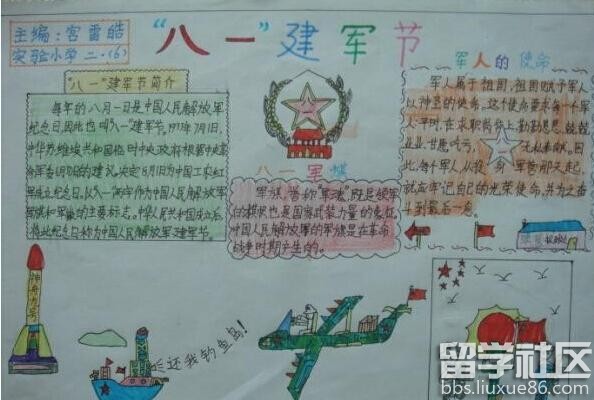 主编:宫雷皓
实验小学二.(6)
“八一”建军节
“八一”建军节简介
每年的八月一日是中国人民解放军
纪念日,因此也叫“八一”建军节。1933年7月1日,
中华苏维埃共和国临时中央政府根据中央革
命军委员会的建议,决定8月1日为中国工农红
军成立纪念日。从“八一”两字作为中国人民解放军
军旗和军徽的主要标志。中华人民共和国成立后,
将此纪念日称为中国人民解放军建军节。
八一军旗
军旗,誉称“军魂”,既是领军
的标识,也是国家武装力量的象征,
中国人民解放军的军旗是在革命
战争时期产生的。
军人的使命
军人属于祖国,祖国赋予军人
以神圣的使命,这个使命要求每一个军
人:平时,在本职岗位上,勤勤恳恳,兢兢
业业,甘愿吃亏,无私奉献。因
此,每个军人,从穿军装那天起,
就应牢记自己的光荣使命,并为之奋
斗到最后一息。
神舟九号
还我钓鱼岛!
留学社区
bbs.liuxue86.com